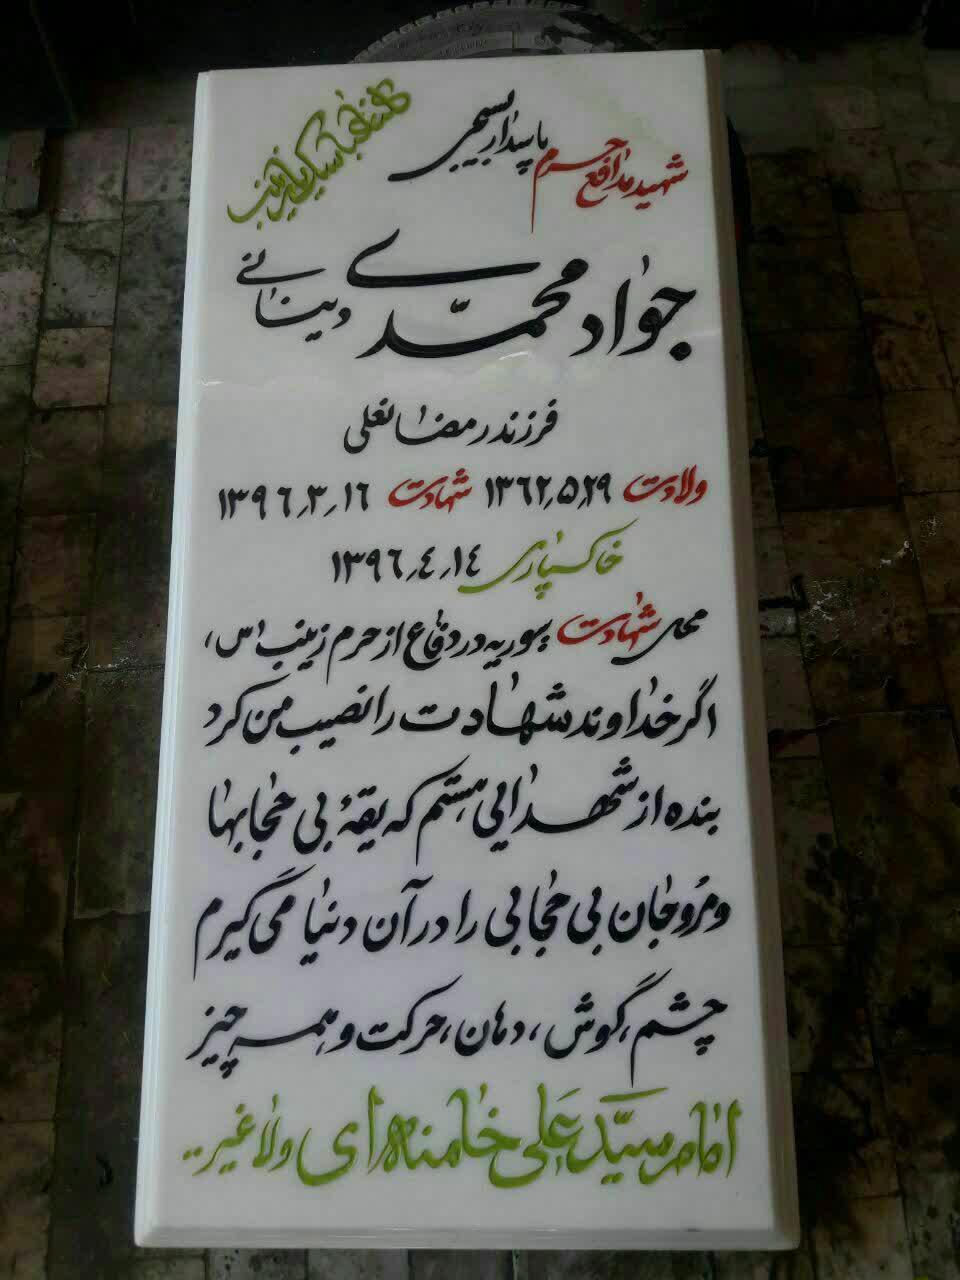 شهید مدافع حرم پاسدار بسیجی
کلنا عباسک یا زینب
جواد محمدی دینانی
فرزند رمضانعلی
ولادت ۱۳۶۲٫۵٫۲۹ شهادت ۱۳۹۶٫۳٫۱۶
خاکسپاری ۱۳۹۶٫۴٫۱۴
محل شهادت سوریه در دفاع از حرم زینب (س)
اگر خداوند شهادت را نصیب من کرد
بنده از شهدایی هستم که یقهٔ بی حجابها
و مروجان بی حجابی را در آن دنیا می گیرم
چشم، گوش، دهان، حرکت و همه چیز
امام سید علی خامنه ای ولاغیر..